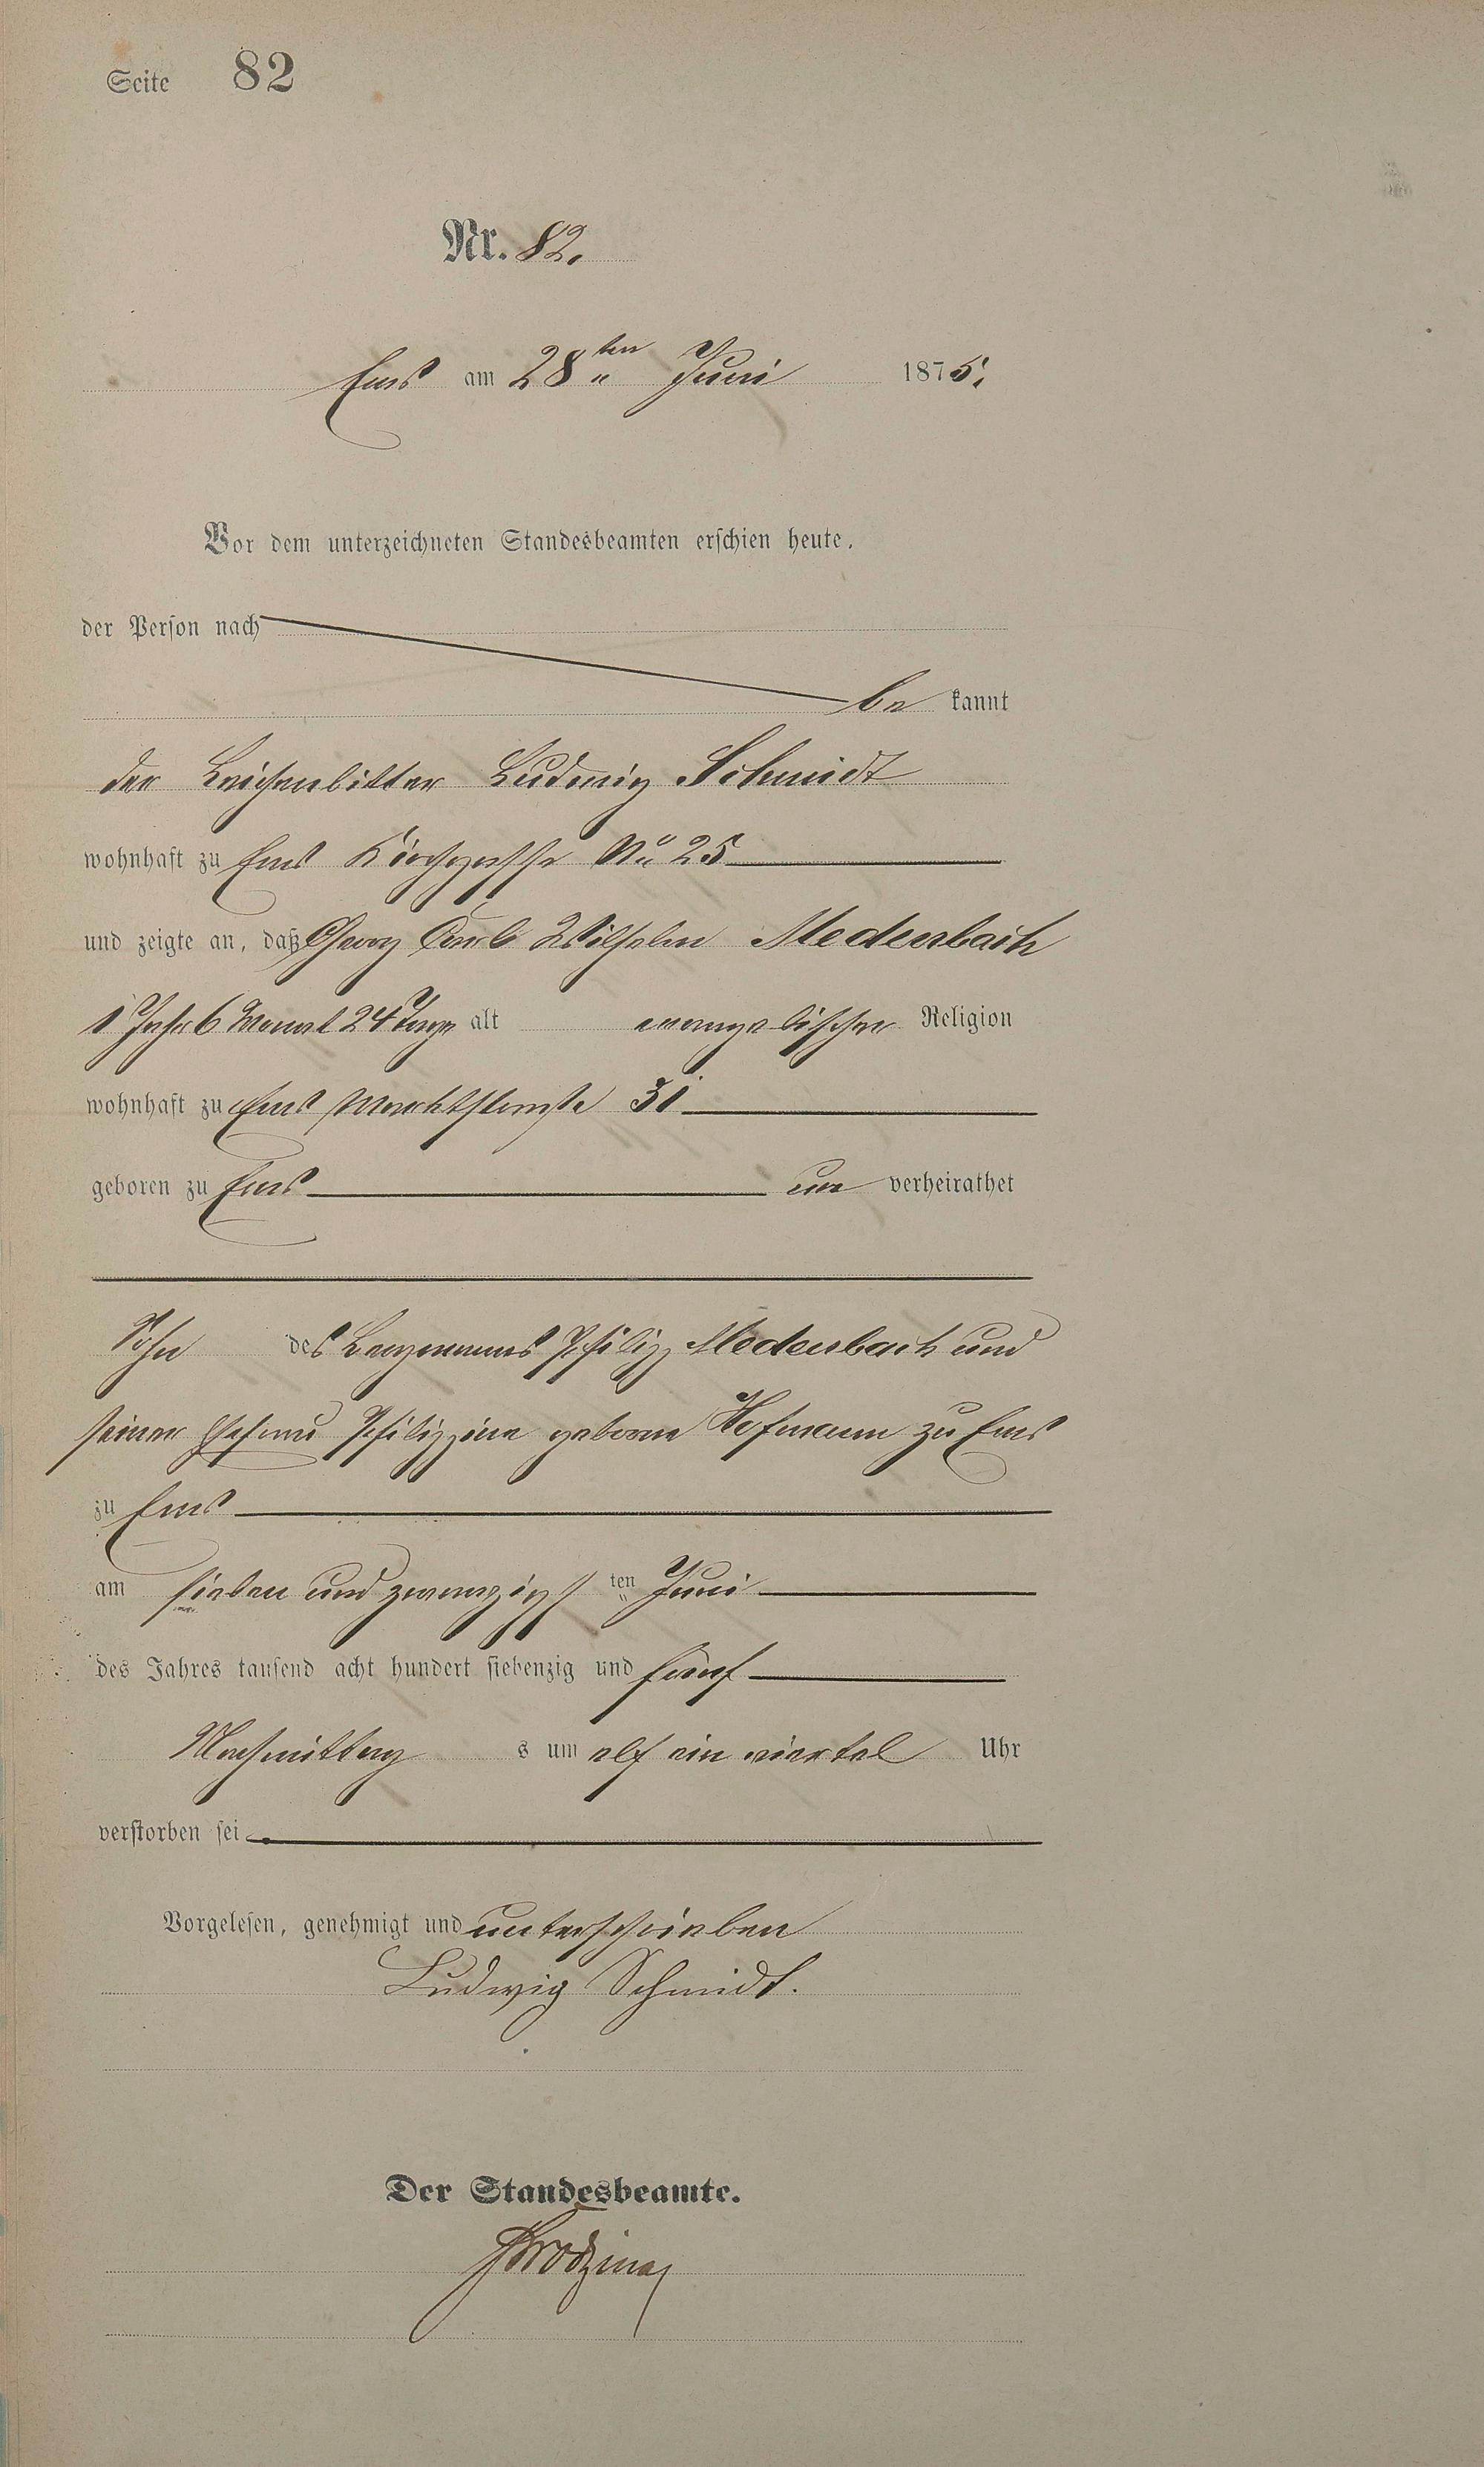 Seite 82
Nr. 82.
Ems am 28ten Juni 1875.
Vor dem unterzeichneten Standesbeamten erschien heute,
der Person nach
be kannt
der Leichenbitter Ludwig Schmidt
wohnhaft zu Ems Kirchgasse No 25
und zeigte an, daß Georg Carl Wilhelm Medenbach
1 Jahr 6 Monat 24 Tage alt evangelischer Religion
wohnhaft zu Ems Marktstraße 31
geboren zu Ems un verheirathet
Sohn des Bergmanns Philipp Medenbach und
seiner Ehefrau Philippine geborne Hofmann zu Ems
zu Ems
am sieben und zwanzigst ten Juni
des Jahres tausend acht hundert siebenzig und fünf
Nachmittag s um elf ein viertel Uhr
verstorben sei
Vorgelesen, genehmigt und unterschrieben
Ludwig Schmidt.
Der Standesbeamte.